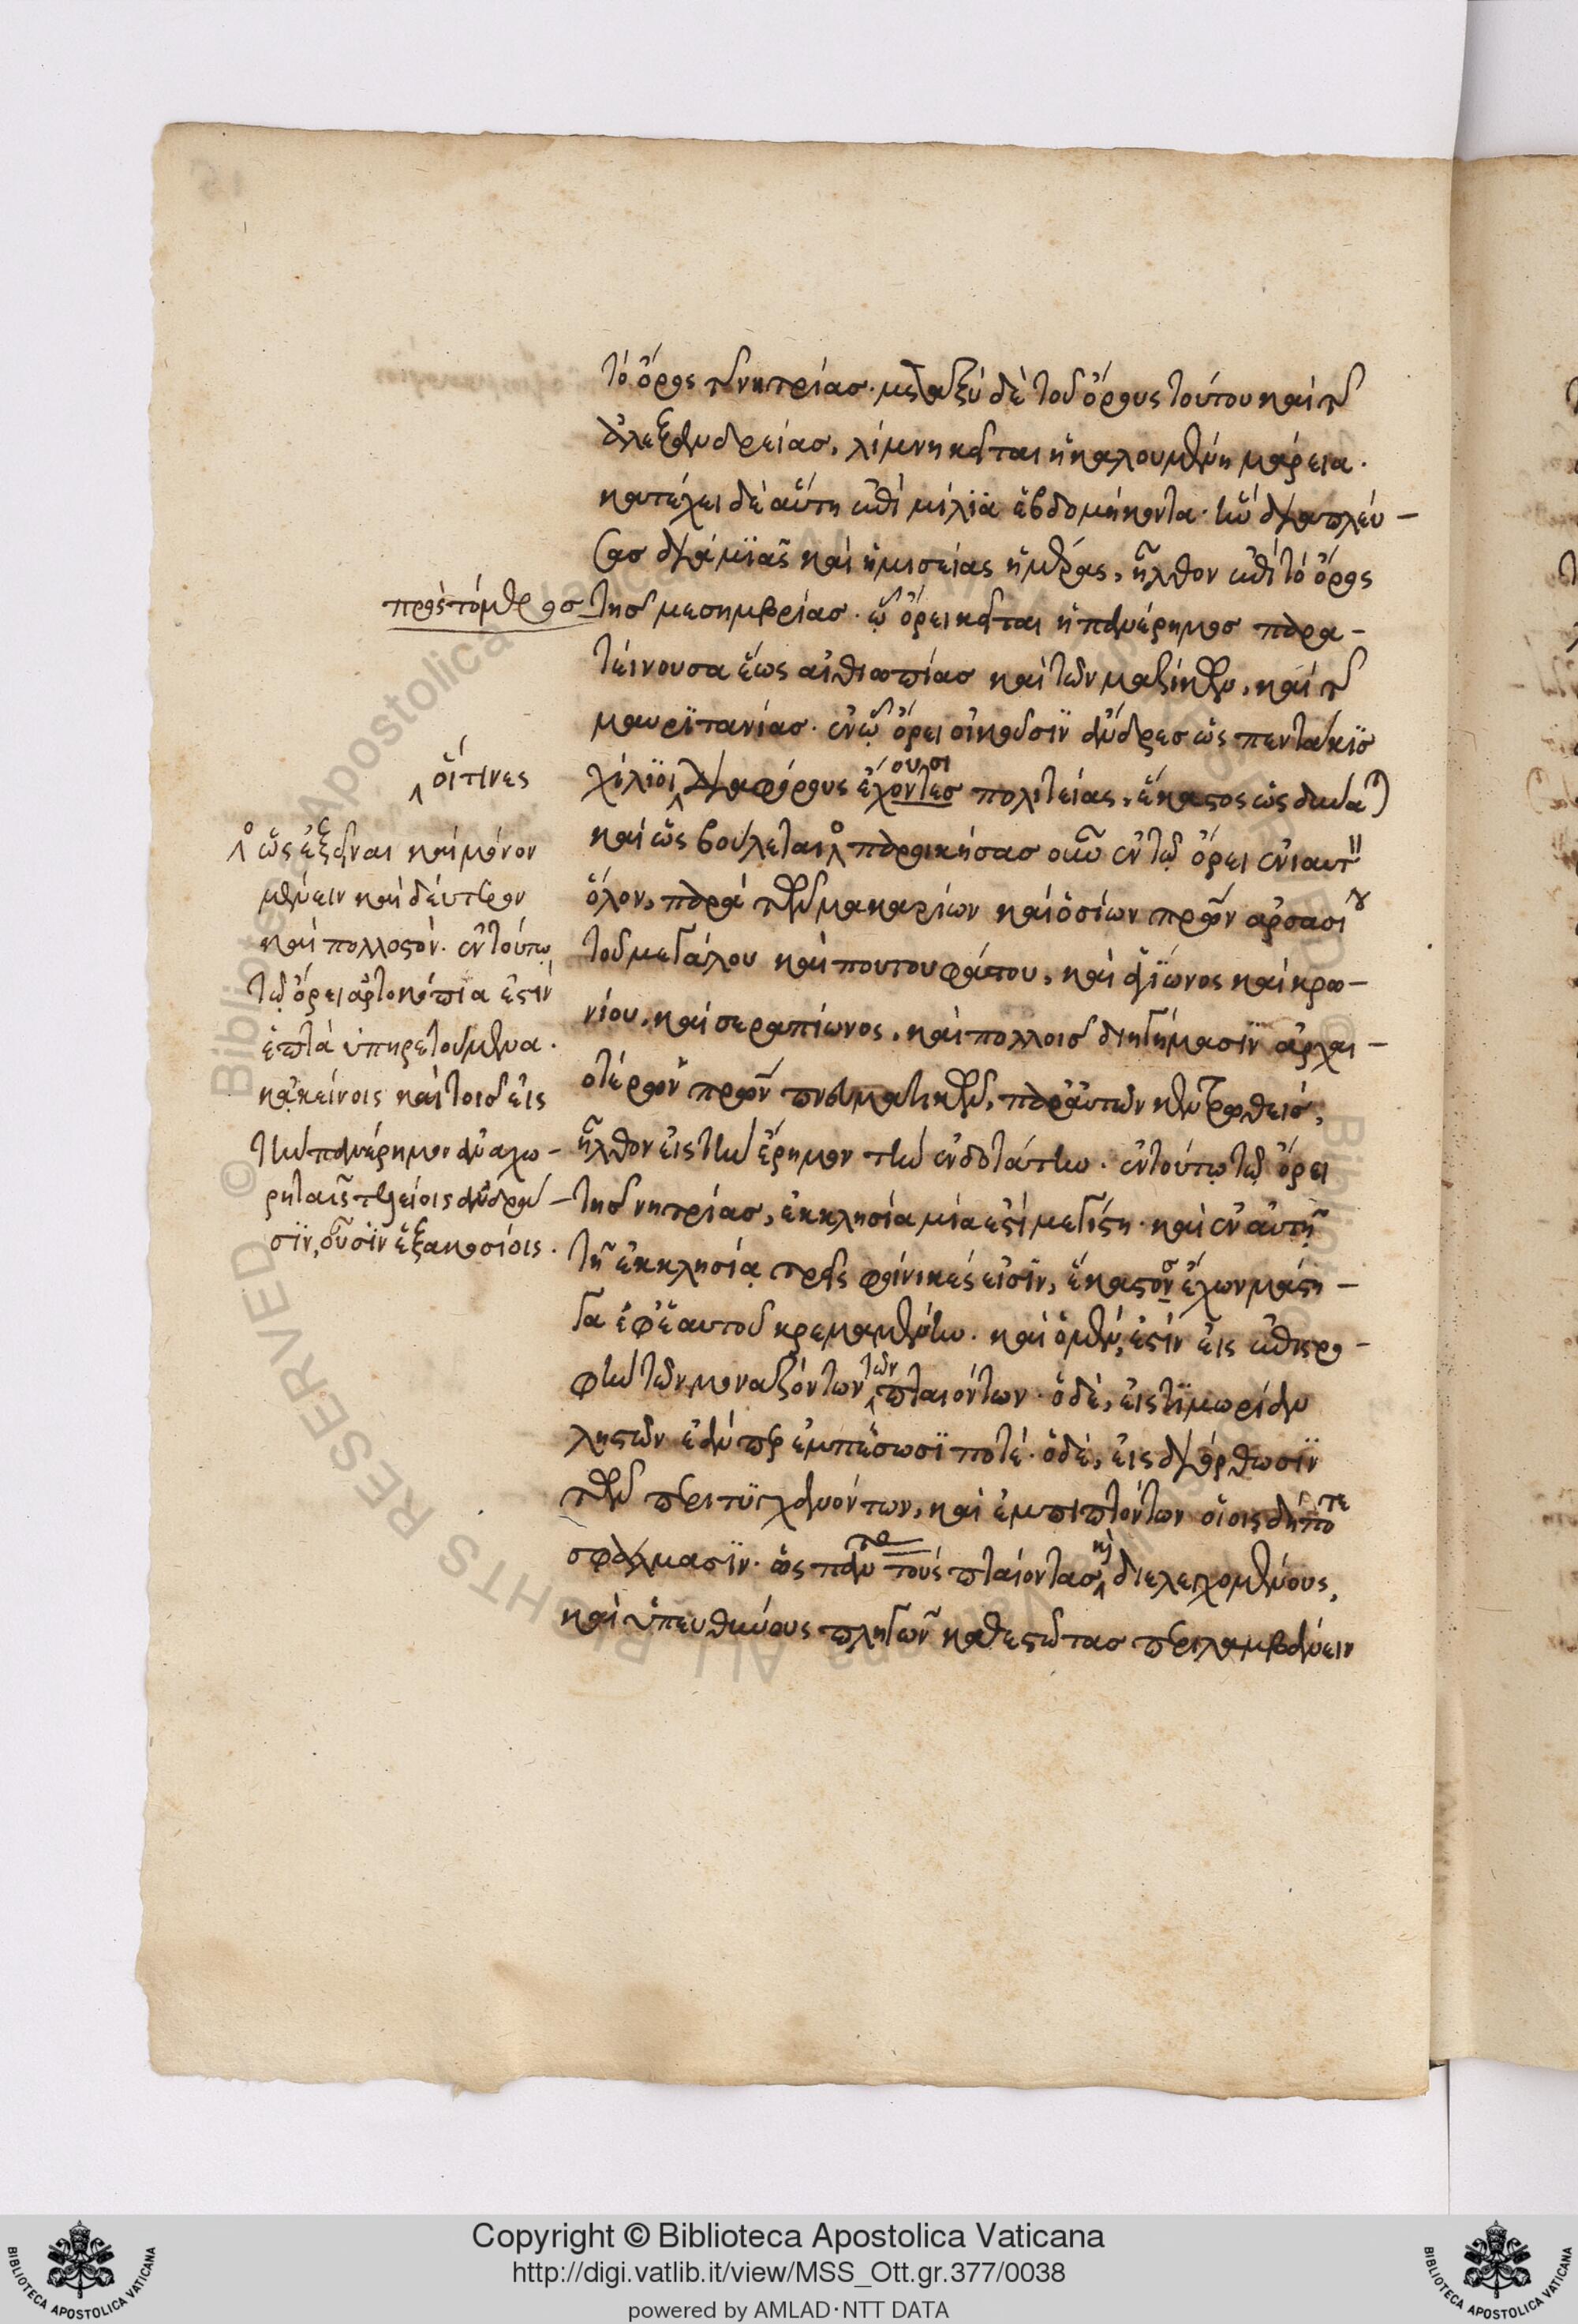 τὸ ὄρος τῆς νητρίας. μεταξὺ δὲ τοῦ ὄρους τούτου καὶ τῆς
ἀλεξανδρείας, λίμνη κεῖται ἡ καλουμένη μάρεια.
κατέχει δὲ αὕτη ἐπὶ μίλϊα ἑβδομήκοντα. ἣν διαπλεύ-
σας διὰ μϊᾶς καὶ ἡμισείας ἡμέρας, ἦλθον ἐπὶ τὸ ὄρος
πρὸς τὸ μέρος
τῆς μεσημβρίας. ᾧ ὄρει κεῖται ἡ πανέρημος παρα-
τείνουσα ἕως αἰθιοπίας καὶ τῶν μαζίκων, καὶ τῆς
μαυρϊτανίας. ἐν ᾧ ὄρει οἰκοῦσϊν ἄνδρες ὡς πεντακϊσ
χίλϊοι διαφόρους ἔχοντες πολιτείας, ἕκαστος ὡς δύνα
οἵτινες
ουσι
καὶ ὡς βούλεται παροικήσας οὖν ἐν τῷ ὄρει ἐνιαυτὸν
ὅλον, παρὰ τῶν μακαρίων καὶ ὁσίων πρων ἀρσασίου
τοῦ μεγάλου καὶ πουτουφάπου, καὶ ἁγϊωνος καὶ κρο-
νίου, καὶ σεραπίωνος, καὶ πολλοῖς διηγήμασϊν ἀρχαι-
οτέρων πρων πνευματικῶν, παρ' αὐτῶν κεντρωθείς,
ἦλθον εἰς τὴν ἔρημον τὴν ἐνδοτάτω. ἐν τούτῳ τῷ ὄρει
τῆς νητρίας, ἐκκλησία μία ἐστὶ μεγίστη. καὶ ἐν αὐτῇ
τῇ ἐκκλησίᾳ τρεῖς φοίνικές εἰσϊν, ἕκαστον ἔχων μάστι-
γα ἐφ' ἑαυτοῦ κρεμαμένην. καὶ ὁ μέν, ἐστὶν εἰς ἐπιστρο-
φὴν τῶν μοναζόντων τῶν πταιόντων. ὁ δὲ, εἰς τϊμωρίαν
λῃστῶν ἐάν περ ἐμπέσωσϊ ποτέ. ὁ δὲ, εἰς διόρθωσϊν
τῶν περιτυγχανόντων, καὶ ἐμπιπτόντων οἵοις δήποτε
σφάλμασϊν. ὡς πάντας τοὺς πταίοντας καὶ διελεγχομένους,
καὶ ὑπευθύνους πληγῶν καθεστῶτας περιλαμβάνειν
ὡς ἐξεῖναι καὶ μόνον
μένειν καὶ δεύτερον
καὶ πολλοστόν. ἐν τούτῳ
τῷ ὄρει ἀρτοκόπϊα ἐστὶν
ἑπτὰ ὑπηρετούμενα.
κἀκείνοις καὶ τοῖς εἰς
τὴν πανέρημον ἀναχω-
ρηταῖς τελείοις ἀνδρά-
σϊν, οὖσϊν ἑξακοσίοις.
Copyright © Biblioteca Apostolica Vaticana
http://digi.vatlib.it/view/MSS_Ott.gr.377/0038
powered by AMLAD·NTT DATA
BIBLIOTECA APOSTOLICA VATICANA
BIBLIOTECA APOSTOLICA VATICANA